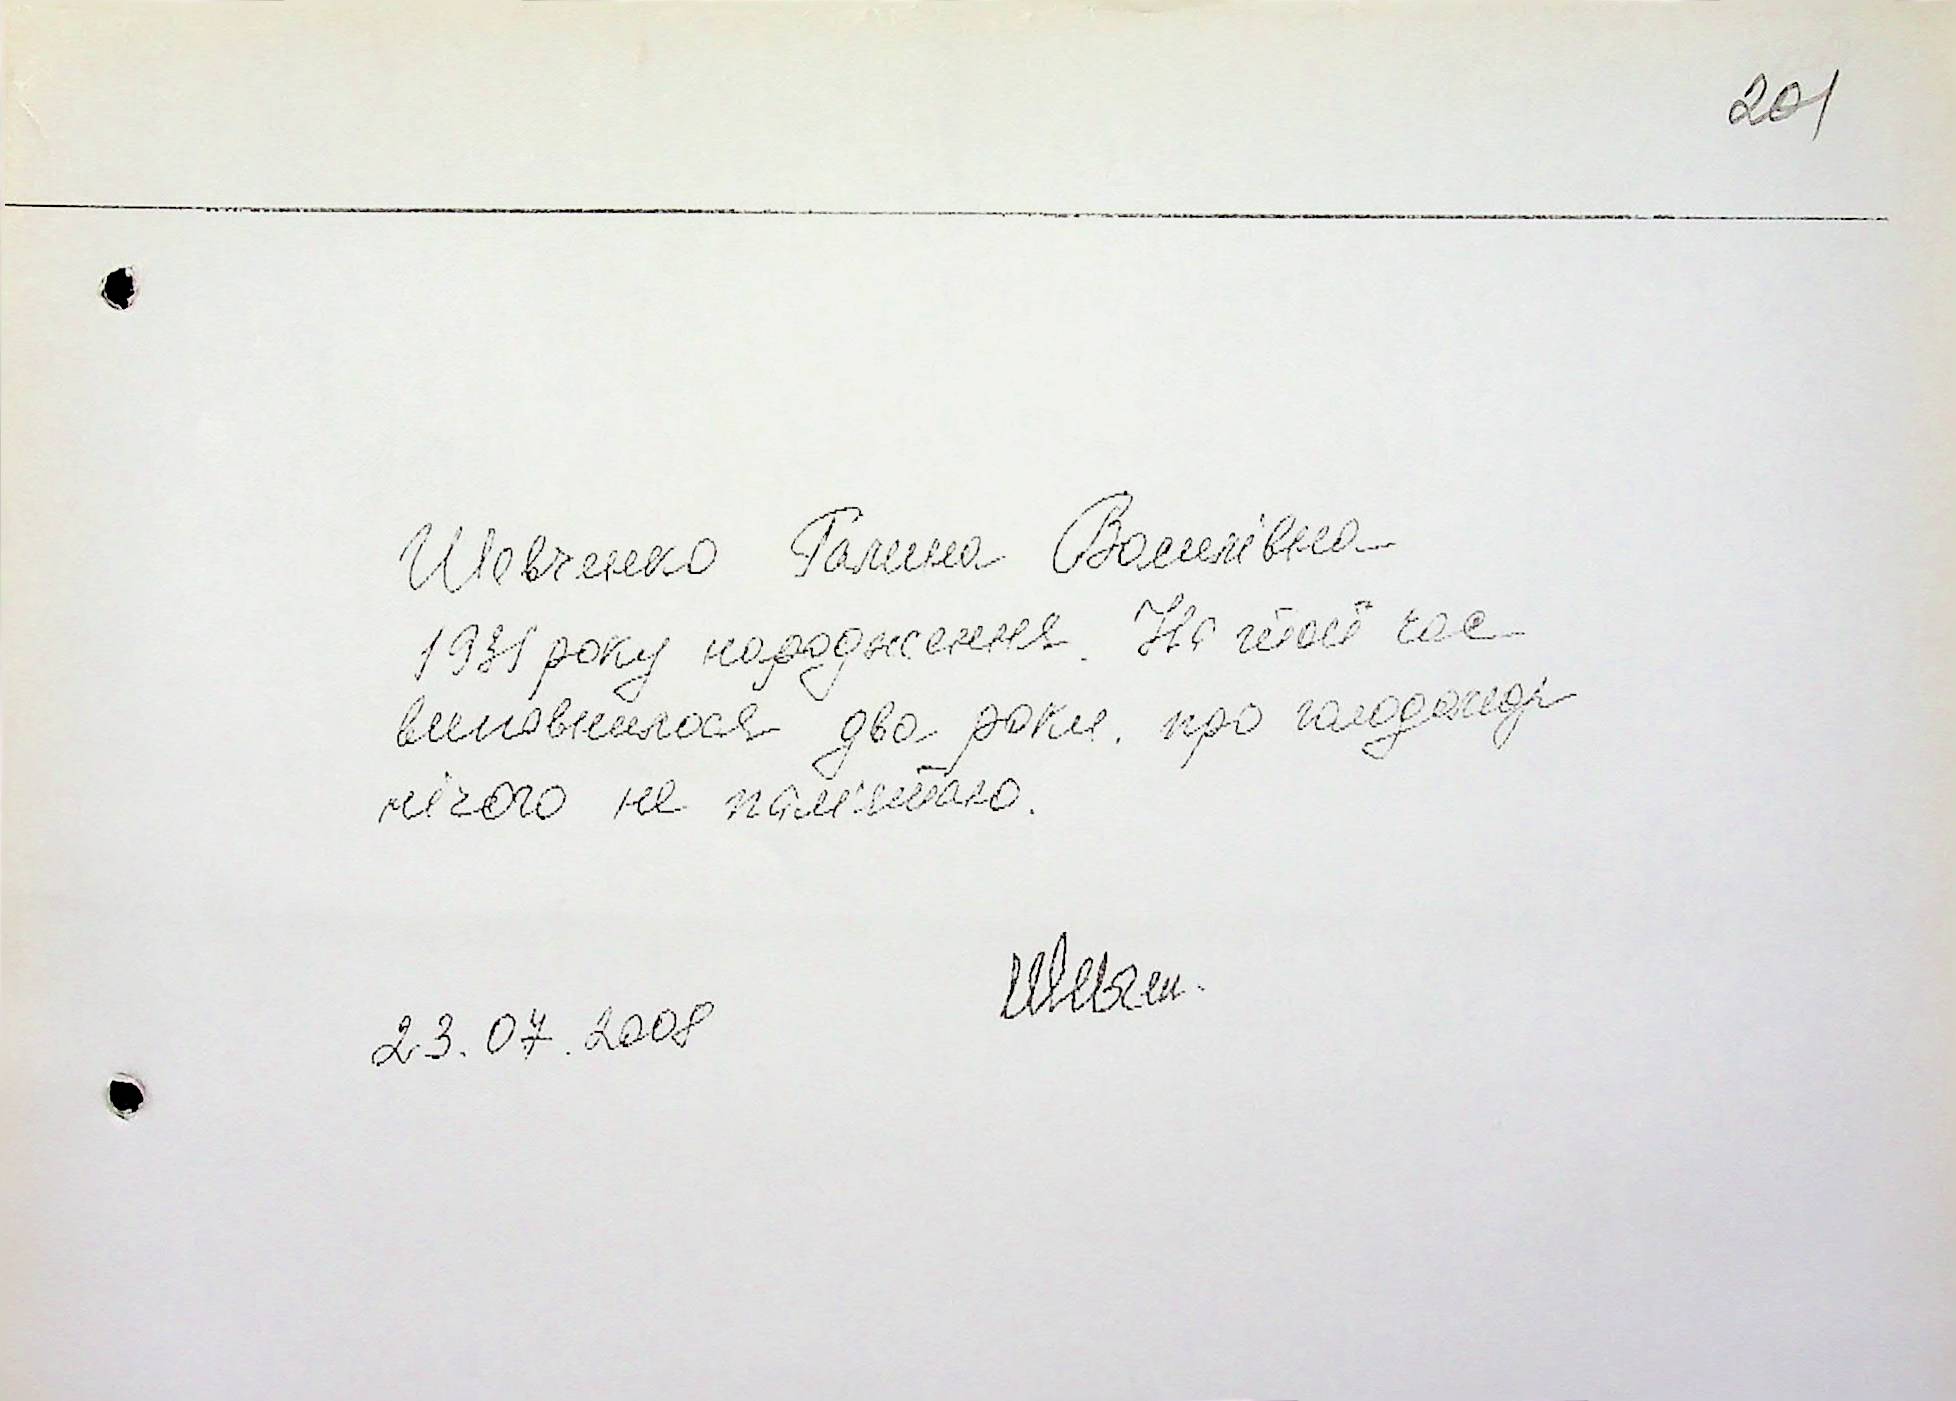 201
Шевченко Галина Василівна
1931 року народження. На той час
виповнилося два роки. про голодомор
нічого не пам'ятаю.
23.07.2008